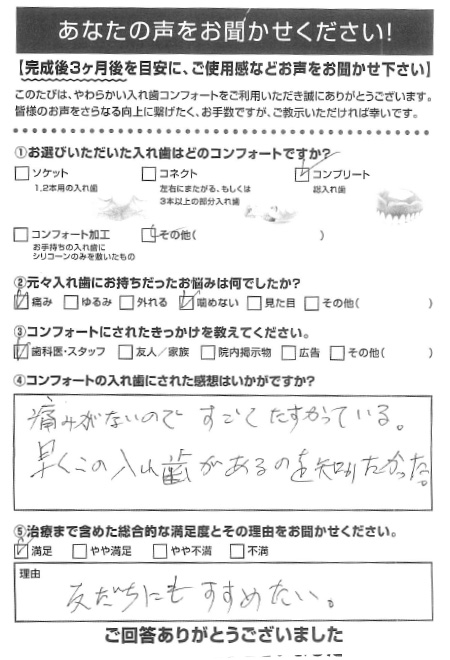 あなたの声をお聞かせください!
【完成後3ヶ月後を目安に、ご使用感などお声をお聞かせ下さい】
このたびは、やわらかい入れ歯コンフォートをご利用いただき誠にありがとうございます。
皆様のお声をさらなる向上に繋げたく、お手数ですが、ご教示いただければ幸いです。
①お選びいただいた入れ歯はどのコンフォートですか?
ソケット コネクト コンプリート
1,2本用の入れ歯 左右にまたがる、もしくは 総入れ歯
3本以上の部分入れ歯
コンフォート加工 その他( )
お手持ちの入れ歯に
シリコーンのみを敷いたもの
②元々入れ歯にお持ちだったお悩みは何でしたか?
痛み ゆるみ 外れる 噛めない 見た目 その他( )
③コンフォートにされたきっかけを教えてください。
歯科医・スタッフ 友人/家族 院内掲示物 広告 その他( )
④コンフォートの入れ歯にされた感想はいかがですか?
痛みがないので すごくたすかっている。
早くこの入れ歯があるのを知りたかった。
⑤治療まで含めた総合的な満足度とその理由をお聞かせください。
満足 やや満足 やや不満 不満
理由
友だちにもすすめたい。
ご回答ありがとうございました